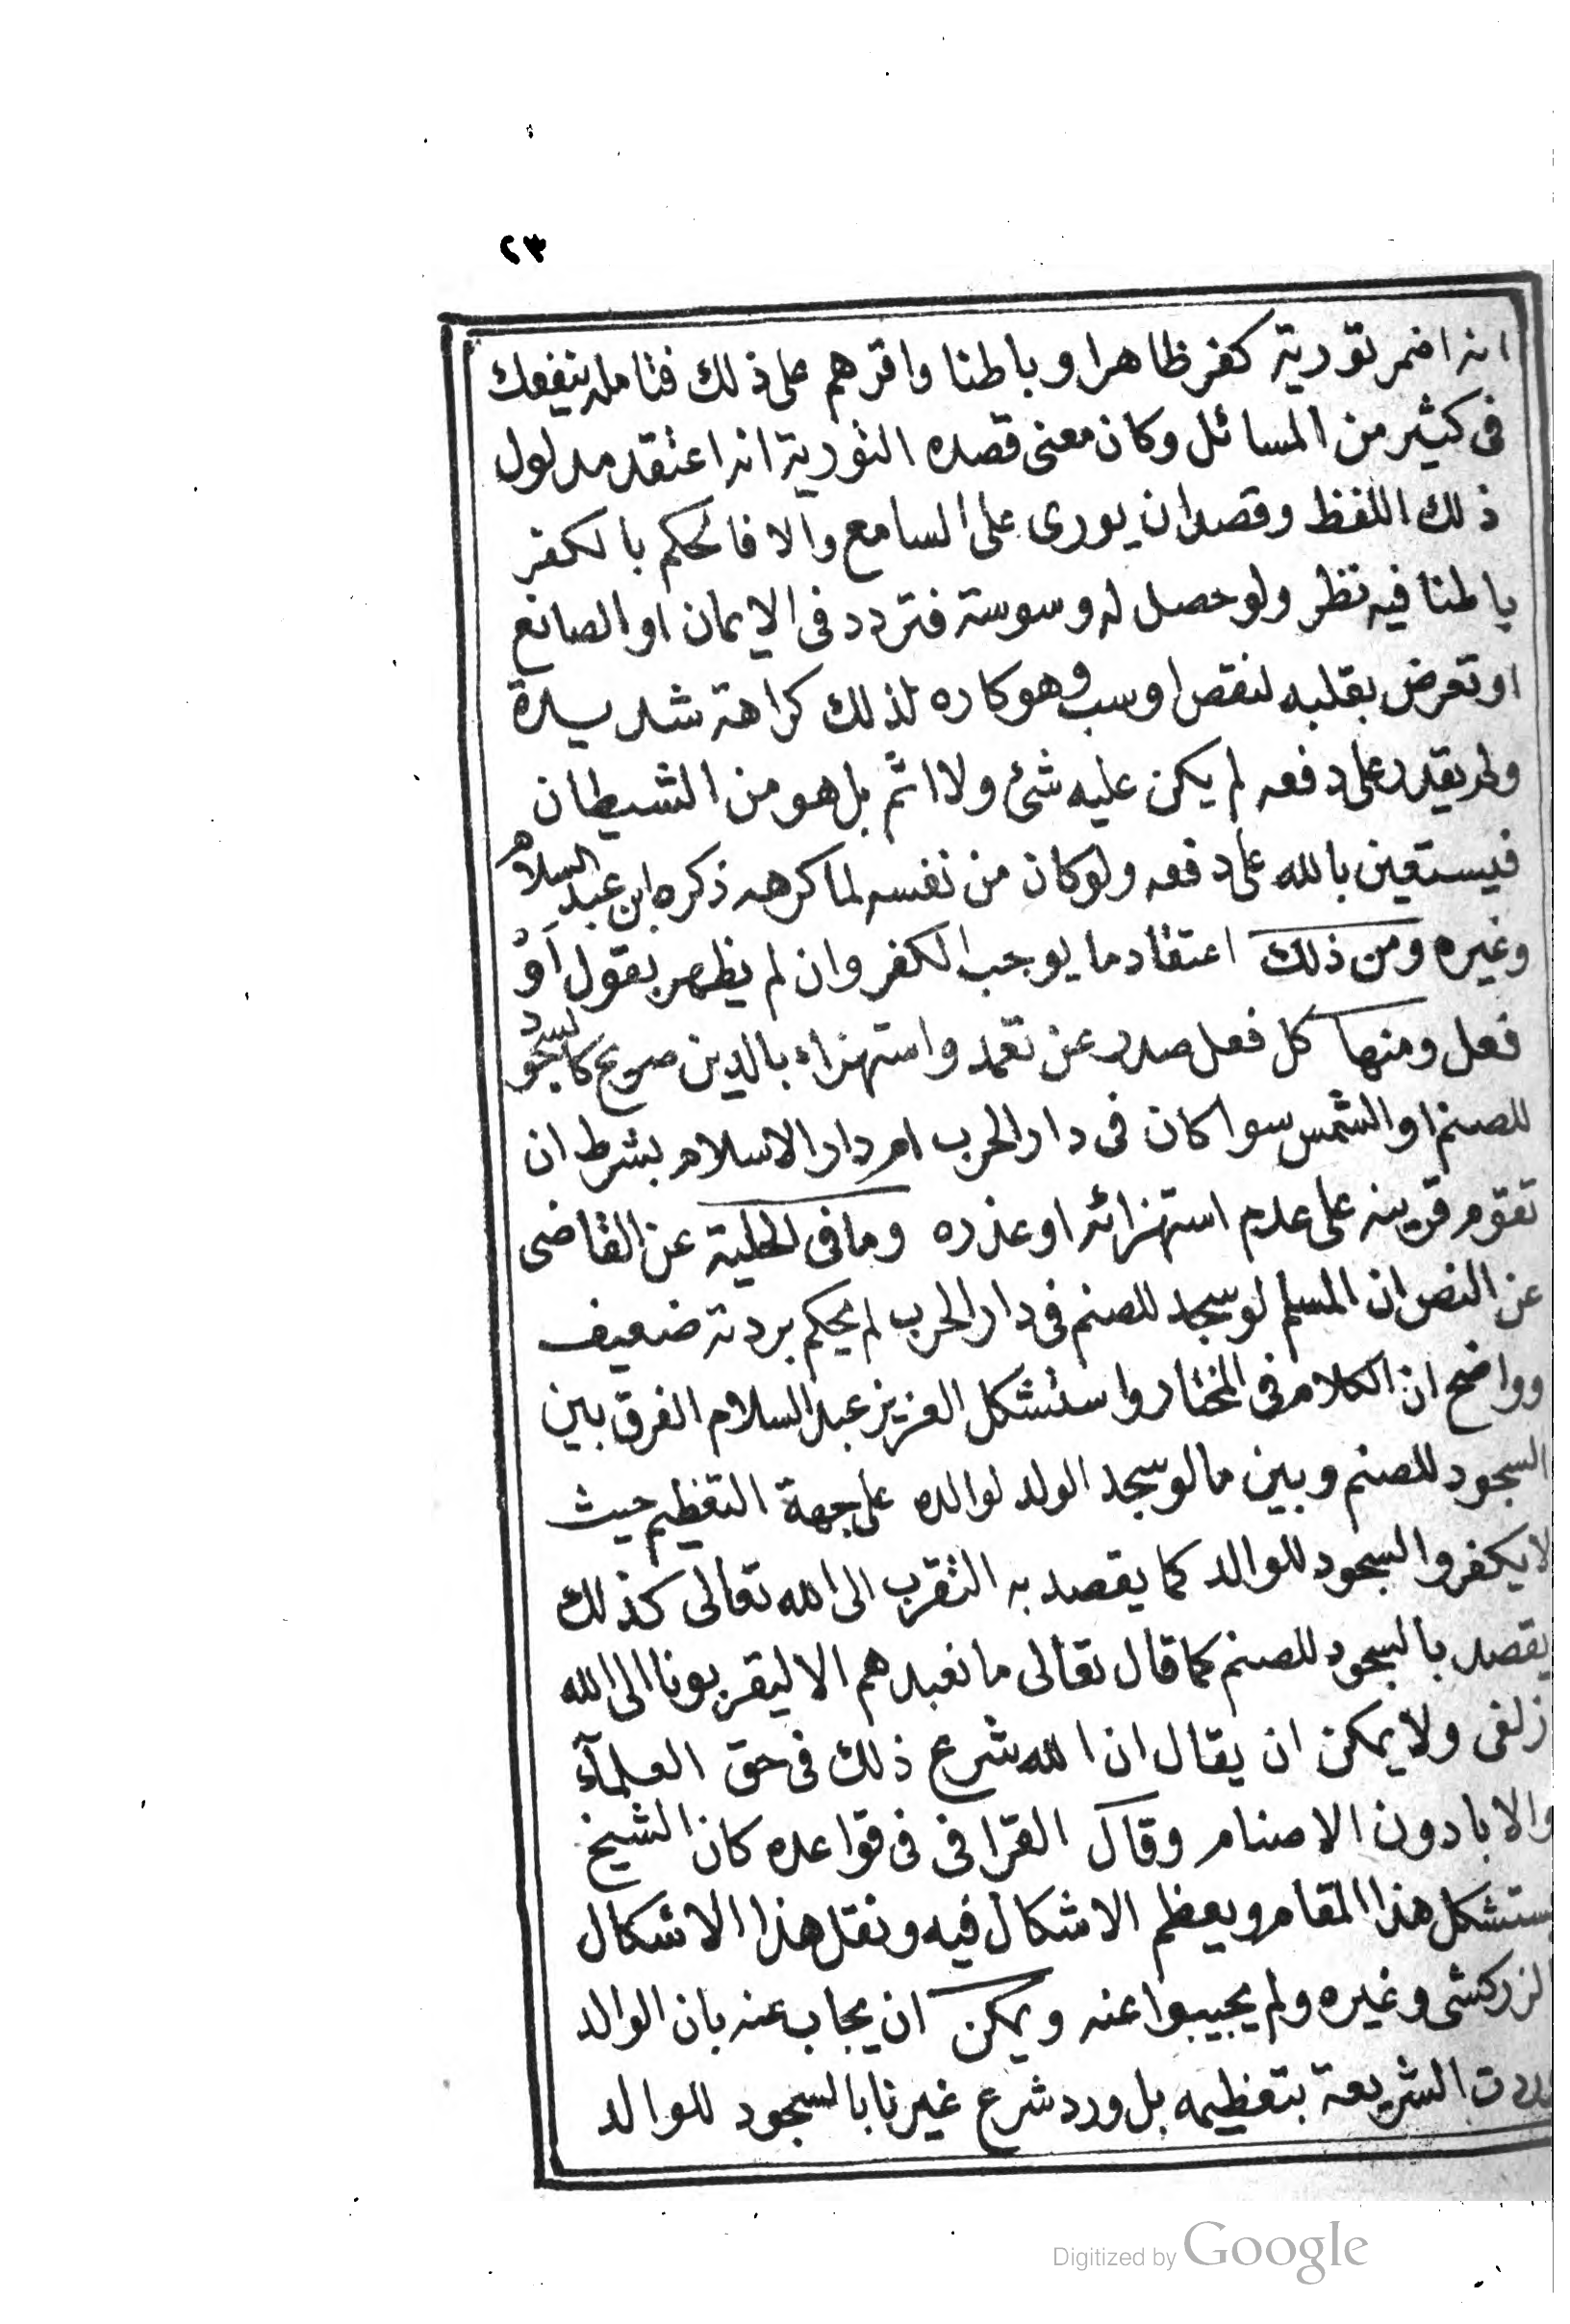 ٢٣
انه اضمر تورية كفر ظاهرا وباطنا واقرهم على ذلك فتامله ينفعك
فى كثير من المسائل وكان معنى قصده التورية انه اعتقد مدلول
ذلك اللفظ وقصد ان يورى على السامع والا فالحكم بالكفر
باطنا فيه نظر ولو حصل له وسوسة فتردد فى الايمان او الصانع
او تعرض بقلبه لنقص او سب وهو كاره لذلك كراهة شديدة
ولم يقدر على دفعه لم يكن عليه شئ ولا اثم بل هو من الشيطان
فيستعين بالله على دفعه ولو كان من نفسه لما كرهه ذكره ابن عبد السلام
وغيره ومن ذلك اعتقاد ما يوجب الكفر وان لم يظهر بقول او
فعل ومنها كل فعل صدر عن تعمد واستهزاء بالدين صريح كالسجود
للصنم او الشمس سوا كان فى دار الحرب ام دار الاسلام بشرط ان
تقوم قرينه على عدم استهزائه او عذره وما فى الحلية عن القاضى
عن النص ان المسلم لو سجد للصنم فى دار الحرب لم يحكم بردته ضعيف
وواضح ان الكلام فى المختار واستشكل العزيز عبد السلام الفرق بين
السجود للصنم وبين ما لو سجد الولد لوالده على جهة التعظيم حيث
لا يكفر والسجود للوالد كما يقصد به التقرب الى الله تعالى كذلك
يقصد بالسجود للصنم كما قال تعالى ما نعبدهم الا ليقربونا الى الله
زلفى ولا يمكن ان يقال ان الله شرع ذلك فى حق العلمآء
والابا دون الاصنام وقال القرافى فى قواعده كان الشيخ
يستشكل هذا المقام ويعظم الاشكال فيه ونقل هذا الاشكال
الزركشى وغيره ولم يجيبوا عنه ويمكن ان يجاب عنه بان الوالد
وردت الشريعة بتعظيمه بل ورد شرع غيرنا بالسجود للوالد
Digitized by Google